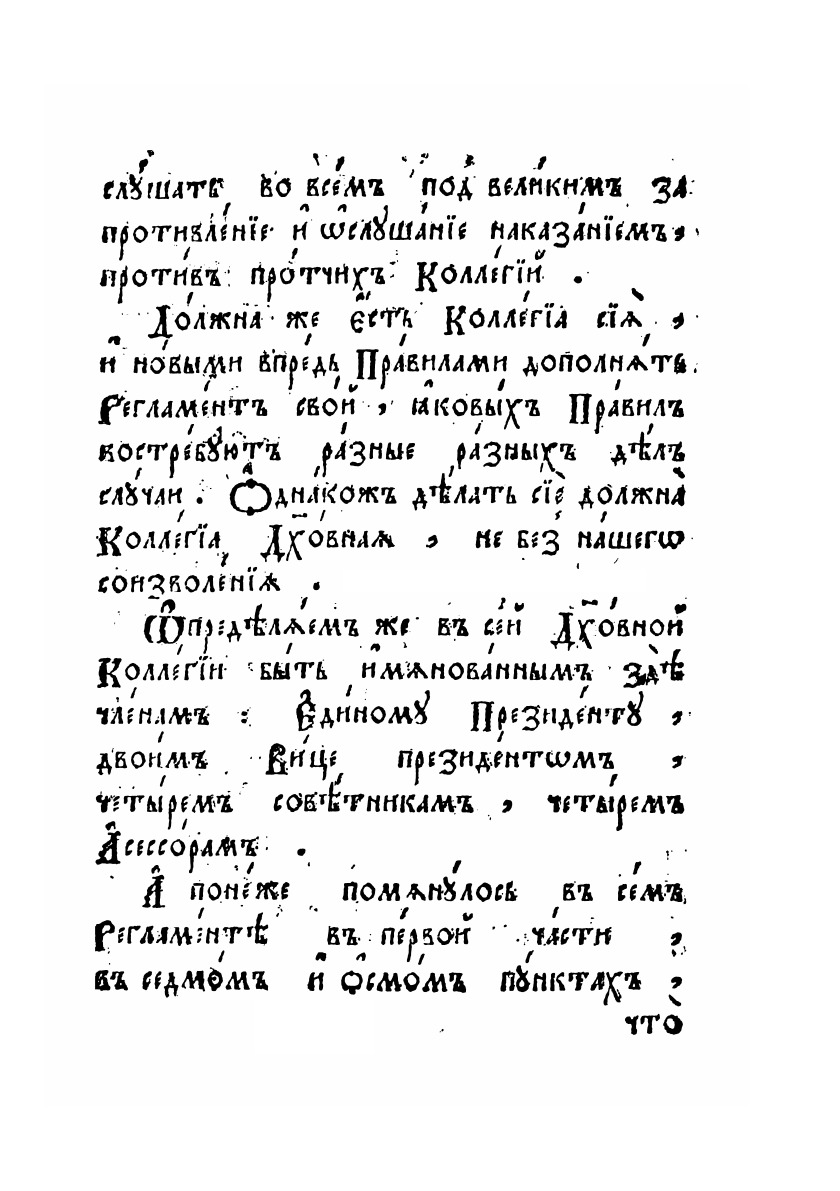 слꙋ́шать во все́мъ под вели́кимъ за
проти́вленїе и҆ ѡ҆слꙋ́шанїе наказа́нїемъ,
проти́въ про́тчихъ Колле́гїй .
Должна̀ же є҆́сть Колле́гїа сїѧ̀ ,
и҆ но́выми впре́дь Пра́вилами дополнѧ́ть
Регла́ментъ сво́й , ꙗ҆ковы́хъ Пра́вилъ
востре́бꙋютъ ра́зные ра́зныхъ дѣ́лъ
слꙋ́чаи . Ѻ҆дна́кожъ дѣ́лать сїѐ должна̀
Колле́гїа Дꙋ҃хо́внаѧ , не без̾ на́шегѡ
соизволе́нїѧ .
Ѡ҆предѣлѧ́емъ же въ се́й Дх҃о́вной
Колле́гїи бы́ть и҆мѧнова́ннымъ здѣ̀
чле́намъ : Є҆ди́номꙋ Президе́нтꙋ ,
двои́мъ Ви́це президе́нтѡмъ ,
четы́ремъ совѣ́тникамъ , четы́ремъ
А҆сессо́рамъ .
А҆ поне́же помѧнꙋ́лось въ се́мъ
Регла́ментѣ въ пе́рвой части ,
въ седмо́мъ и҆ ѻ҆смо́мъ пꙋ́нктахъ ,
что̀